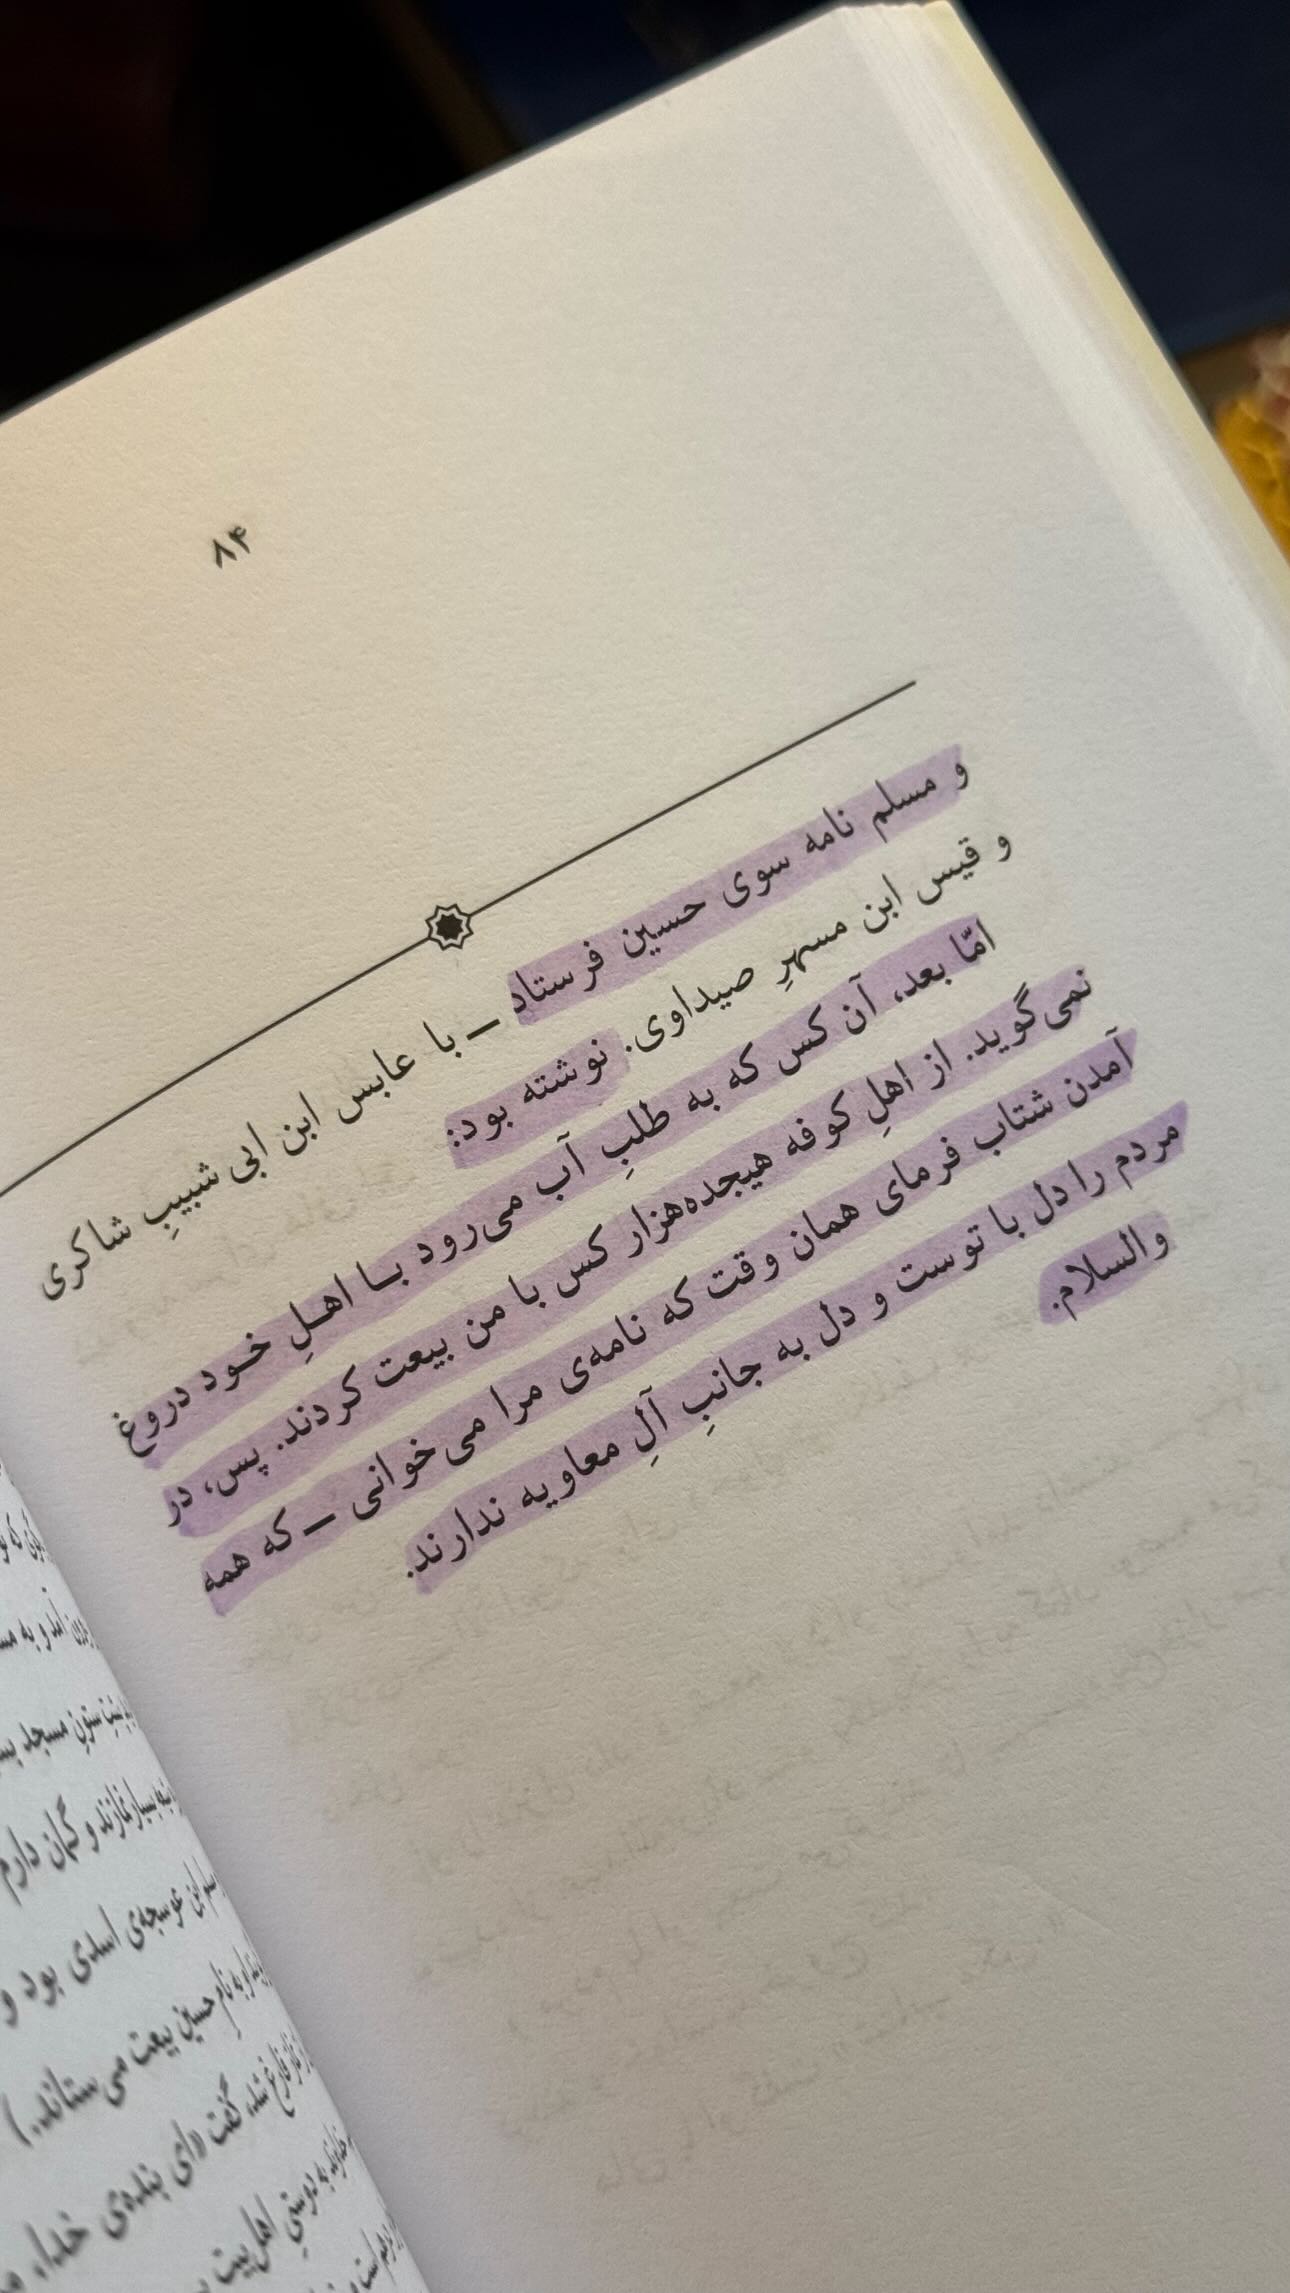 ۸۴
و مسلم نامه سوی حسین فرستاد ـ با عابس ابن ابی شبیبِ شاکری
و قیس ابن مسهرِ صیداوی. نوشته بود:
امّا بعد، آن کس که به طلبِ آب می‌رود بـا اهـلِ خـود دروغ
نمی‌گوید. از اهلِ کوفه هیجده‌هزار کس با من بیعت کردند. پس، در
آمدن شتاب فرمای همان وقت که نامه‌ی مرا می‌خوانی ـ که همه
مردم را دل با توست و دل به جانبِ آلِ معاویه ندارند.
والسلام.
آمد و به
ستونِ مسجد
بسیار نمازند و گمان دارم
عوسجه‌ی اسدی بود و
به نامِ حسین بیعت می‌ستاند.)
فارغ شد، گفت «ای بنده‌ی خدا،
به دوستیِ اهلِ بیت